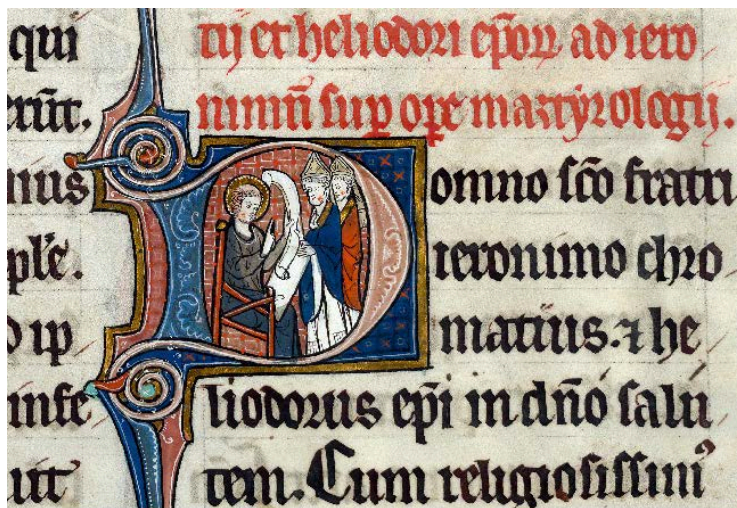 qui
erūt.
ple.
ip
tij et heliodori ep̄oꝝ ad iero
nimū suꝑ oꝑe martyrologij.
Domno sc̄o fratri
ieronimo chro
matius. ⁊ he
liodorus ep̄i in dn̄o salu
tem. Cum religiosissimꝰ